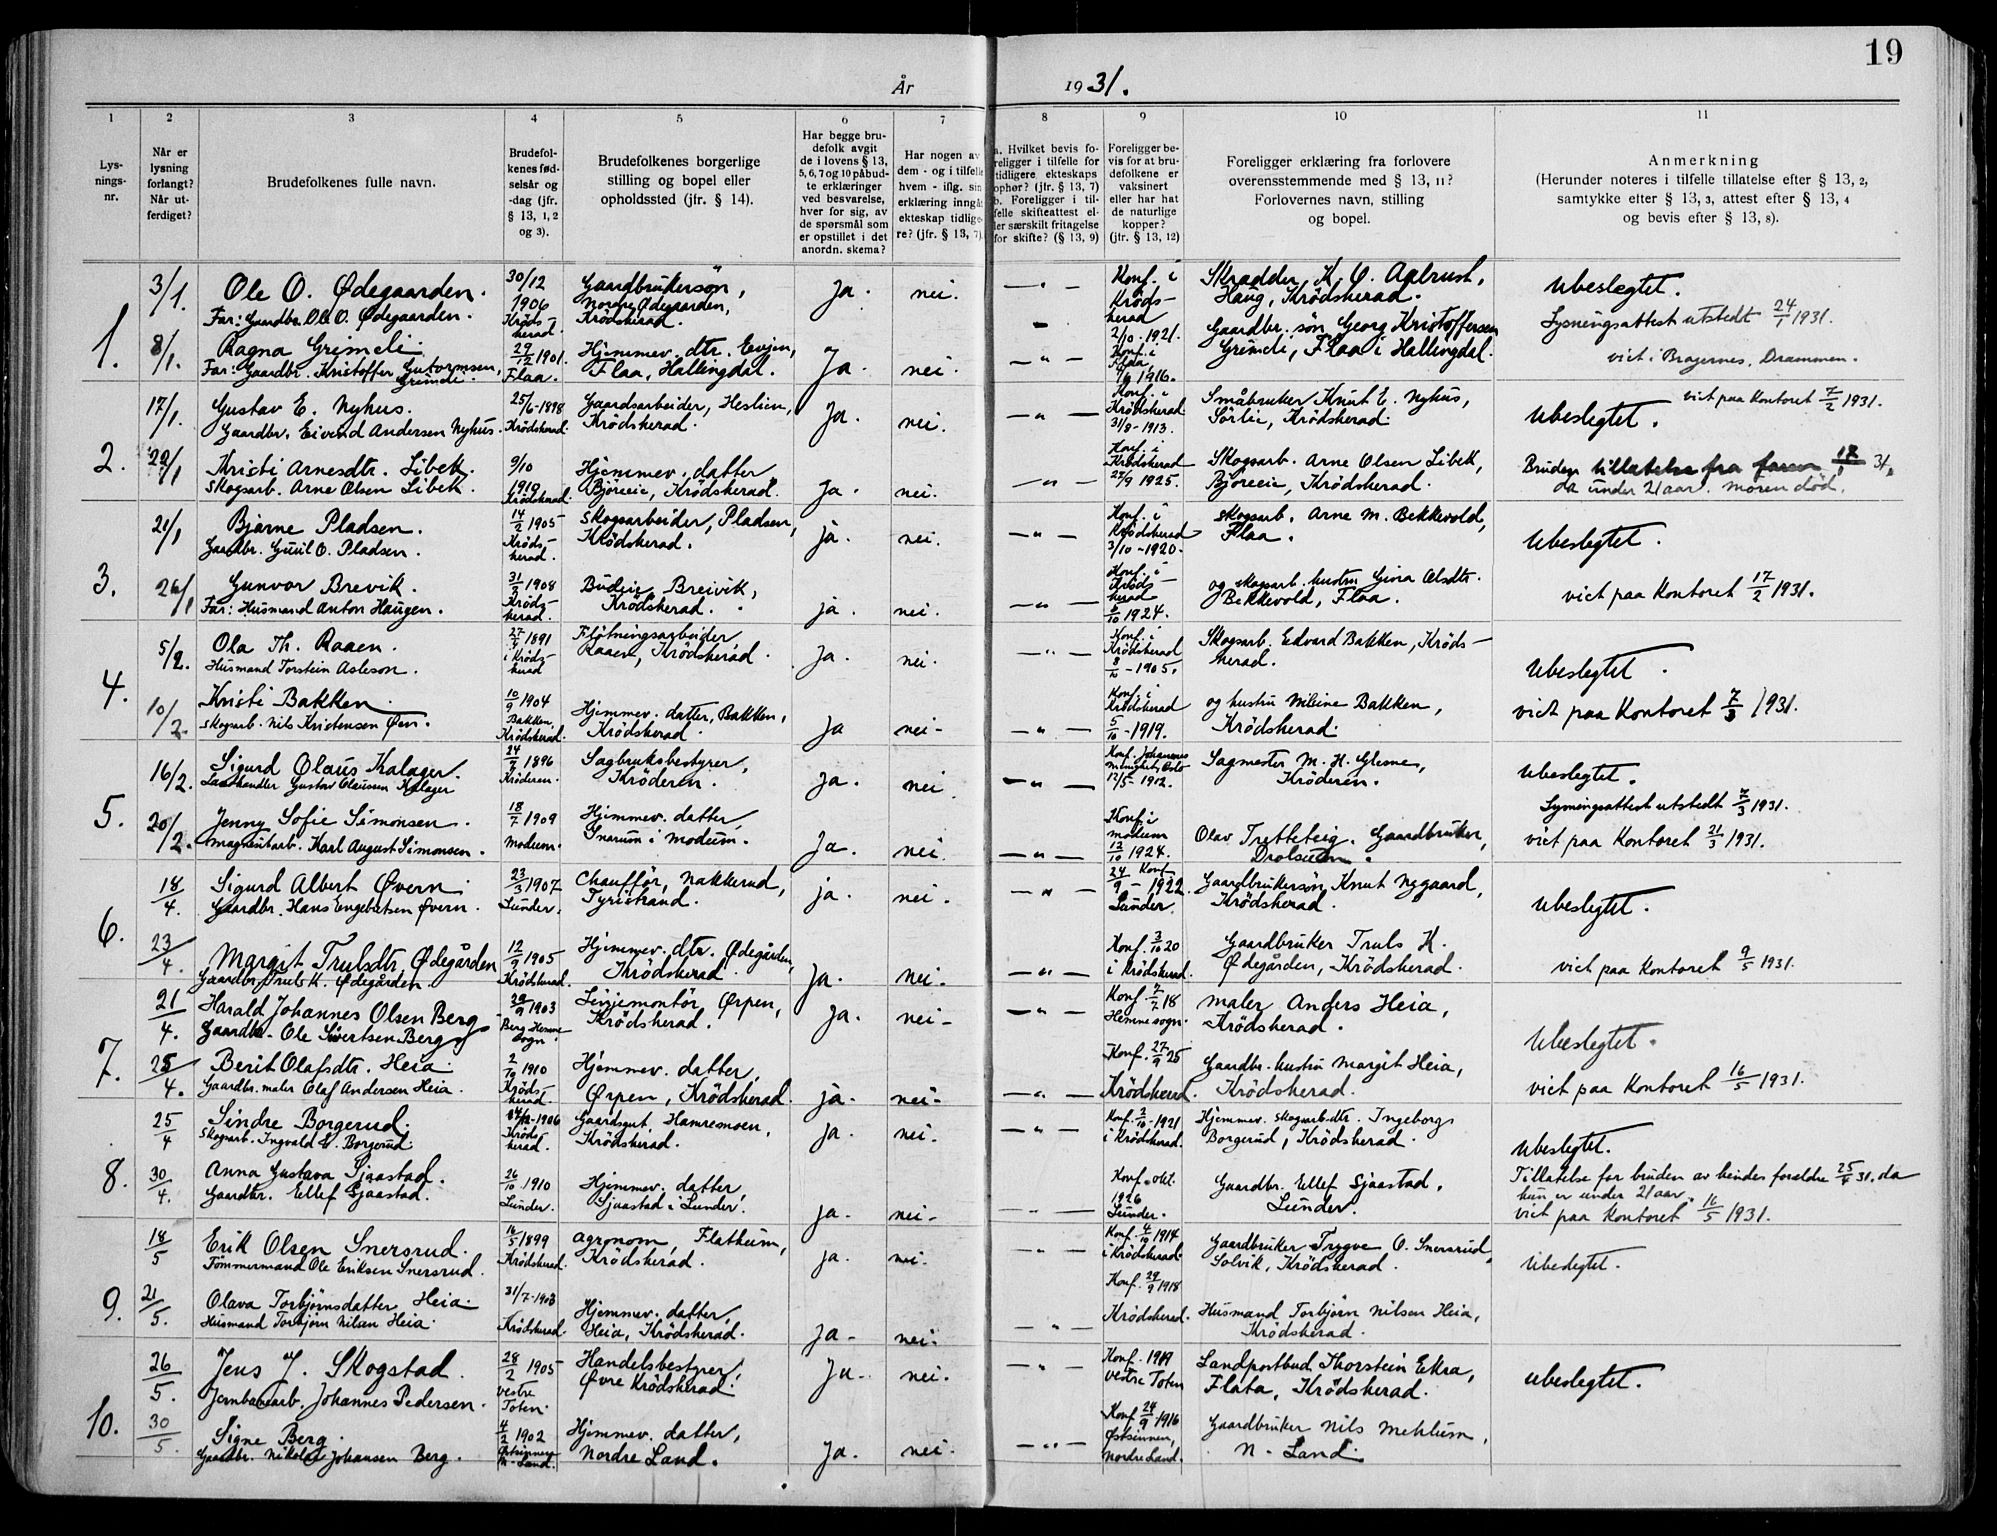 19
År 1931.
1
2
3
4
5
6
7
8
9
10
11
Lys-
nings-
nr.
Når er
lysning
forlangt?
Når ut-
ferdiget?
Brudefolkenes fulle navn.
Brudefol-
kenes fød-
selsår og
-dag (jfr.
§ 13, 1, 2
og 3).
Brudefolkenes borgerlige
stilling og bopel eller
opholdssted (jfr. § 14).
Har begge bru-
defolk avgit
de i lovens § 13,
5, 6, 7 og 10 påbud-
te erklæringer
ved besvarelse,
hver for sig, av
de spørsmål som
er opstillet i det
anordn. skema?
Har nogen av
dem - og i tilfelle
hvem - iflg. sin
erklæring inngåt
ekteskap tidlige-
re? (jfr. § 13, 7)
a. Hvilket bevis fo-
religger i tilfelle for
tidligere ekteskaps
ophør? (jfr. § 13, 7)
b. Foreligger i til-
felle skifteattest el-
ler særskilt fritagelse
for skifte? (§ 13, 9)
Foreligger be-
vis for at bru-
defolkene er
vaksinert
eller har hat
de naturlige
kopper?
(jfr. § 13, 12)
Foreligger erklæring fra forlovere
overensstemmende med § 13, 11?
Forlovernes navn, stilling
og bopel.
Anmerkning
(Herunder noteres i tilfelle tillatelse efter § 13, 2,
samtykke efter § 13, 3, attest efter § 13, 4
og bevis efter § 13, 8).
1.
3/1.
Ole O. Ødegaarden.
Far: Gaardbr. Ole O. Ødegaarden.
30/12
1906
Kröds-
herad.
Gaardbrukersön,
Nordre Ødegaarden,
Krödsherad.
Ja. nei. — " —
Konf. i
Kröds-
herad
2/10 - 1921.
Skrædder K. O. Aabrust,
Haug, Krödsherad.
Ubeslegtet.
Lysningsattest utstedt 24/1 1931.
8/1.
Ragna Grimeli.
Far: Gaardbr. Kristoffer Gutormsen,
Grimeli.
29/12 1901.
Flaa.
Hjemmev. dtr. Evjen,
Flaa, Hallingdal.
Ja. nei. — " —
Konf. i
Flaa
1916.
Gaardbr. sön Georg Kristoffersen
Grimeli, Flaa i Hallingdal.
viet i Bragernes, Drammen.
2.
17/1.
Gustav E. Nyhus.
Gaardbr. Eivend Andersen Nyhus.
25/6-1898
Krödsherad.
Gaardsarbeider, Heslien,
Krödsherad.
Ja. nei. — " —
Konf. i
Krödsherad
31/8 - 1913.
Småbruker Knut E. Nyhus,
Sörlie, Krödsherad.
viet paa Kontoret 7/2 1931.
Ubeslegtet.
22/1
Kristi Arnesdtr. Libek.
Skogsarb. Arne Olsen Libek.
9/10
1910
Krödsherad.
Hjemmev. datter
Björeeie, Krödsherad.
Ja. nei. — " —
Konf. i
Krödsherad
27/9 1925.
Skogsarb. Arne Olsen Libek,
Björeeie, Krödsherad.
Brudens tillatelse fra faren 31,
da under 21 aar. moren död.
3.
21/1
Bjarne Pladsen.
Gaardbr. Guul O. Pladsen.
14/2 1905
Kröds-
herad.
Skogsarbeider, Pladsen,
Krödsherad.
ja. nei. — " —
Konf. i
Krödsherad
3/10 - 1920.
Skogsarb. Arne M. Bekkevold,
Flaa.
Ubeslegtet.
26/1
Gunvor Brevik.
Far: Husmand Anton Haugen.
1908
Kröds-
herad.
Budeie, Breivik,
Krödsherad.
ja. nei. — " —
Konf. i
Kröds-
herad
1924.
og skogsarb. hustru Gina Olsdtr.
Bekkevold, Flaa.
viet paa Kontoret 17/2 1931.
4.
5/2.
Ola Th. Raaen.
Husmand Torstein Asleson.
1891
i Kröds-
herad
Flötningsarbeider
Raaen, Krödsherad.
Ja. nei. — " —
Konf. i
Krödsherad
8/10 - 1905.
Skogsarb. Edvard Bakken, Kröds-
herad.
Ubeslegtet.
10/2.
Kristi Bakken.
Skogsarb. Nils Kristensen Øen.
10/9 1904
Bakken,
Krödsherad.
Hjemmev. datter, Bakken,
Krödsherad.
Ja nei. — " —
Konf. i
Krödsherad
5/10 - 1919.
og hustru Miline Bakken,
Krödsherad.
viet paa Kontoret 7/3 1931.
5.
16/2.
Sigurd Olaus Kalager.
Landhandler Gustav Clausen Kalager
1896
Kröderen.
Sagbruksbestyrer,
Kröderen.
Ja. nei. — " —
Konf. Johannes
menighet, Oslo
12/5 - 1912.
Sagmester M. H. Glesne,
Kröderen.
Ubeslegtet.
Lysningsattest utstedt 7/3 1931.
20/2.
Jenny Sofie Simonsen.
Magasinarb. Karl August Simonsen.
18/7 1909
Modum.
Hjemmev. datter,
Snarum i Modum.
Ja. nei. — " —
Konf. i
Modum
12/10 1924.
Olav Tretteteig, Gaardbruker,
Drolsum.
viet paa Kontoret 21/3 1931.
6.
18/4.
Sigurd Albert Øvern.
Gaardbr. Hans Engebretsen Øvern.
23/3 1907
Lunder.
Chauffør, Nakkerud,
Tyristrand.
ja. nei. — " —
24/9 Konf. - 1922.
Lunder.
Gaardbrukersön Knut Nygaard,
Krödsherad.
Ubeslegtet.
23/4.
Margit Trulsdtr. Ødegården
Gaardbr. Truls K. Ødegården.
12/9 1905
Krödsherad.
Hjemmev. dtr. Ødegården,
Krödsherad.
Ja. nei. — " —
Konf. 3/10 20
i Krödsherad.
Gaardbruker Truls K.
Ødegården, Krödsherad.
viet paa Kontoret 9/5 1931.
7.
21/4.
Harald Johannes Olsen Berg
Gaardbr. Ole Sivertsen Berg
29/9 1903
Berg Hemne
sogn.
Linjemontör, Ørpen,
Krödsherad.
Ja. nei. — " —
Konf. 7/7 18
Hemne sogn.
Maler Anders Heia,
Krödsherad.
Ubeslegtet.
25/4.
Berit Olafsdtr. Heia.
Gaardbr. maler Olaf Andersen Heia.
1910
Kröds-
herad.
Hjemmev. datter,
Ørpen, Krödsherad.
ja. nei. — " —
Konf. 27/9 25
Krödsherad.
Gaardbr. hustru Margit Heia,
Krödsherad.
viet paa Kontoret 16/5 1931.
8.
25/4
Sindre Borgerud.
Skogarb. Ingvald G. Borgerud.
1906
Kröds-
herad.
Gaardsgut, Hamremoen,
Krödsherad.
Ja. nei. — " —
Konf. 2/10 - 1921
i Krödsherad.
Hjemmev. skogarb.dtr. Ingeborg
Borgerud, Krödsherad.
Ubeslegtet.
30/4.
Anna Gustava Sjaastad.
Gaardbr. Ellef Sjaastad.
26/10 1910
Lunder.
Hjemmev. datter,
Sjaastad i Lunder.
Ja. nei. — " —
Konf. okt.
1926
Lunder.
Gaardbr. Ellef Sjaastad,
Lunder.
Tillatelse for bruden av hendes forældre 25/4 31, da
hun er under 21 aar.
viet paa Kontoret 16/5 1931.
9.
18/5
Erik Olsen Snersrud.
Tömmermand Ole Eriksen Snersrud.
16/5 1899
Krödsherad.
Agronom, Flatheim,
Krödsherad.
ja. nei. — " —
Konf. 4/10 1914
i Krödsherad.
Gaardbruker Trygve O. Snersrud,
Solvik, Krödsherad.
Ubeslegtet.
21/5.
Olava Torbjörnsdatter Heia.
Husmand Torbjörn Nilsen Heia.
31/7-1903
Krödsherad.
Hjemmev. datter,
Heia, Krödsherad.
Ja. nei. — " —
Konf. 29/9 1918
Krödsherad.
Husmand Torbjörn Nilsen Heia,
Krödsherad.
10.
26/5.
Jens J. Skogstad.
Jernbanearb. Johannes Pedersen.
28/2 1905
Vestre
Toten.
Handelsbestyrer,
Øvre Krödsherad.
Ja. nei. — " —
Konf. 1919
Vestre Toten
Landpostbud Thorstein Ekra,
Flata, Krödsherad.
Ubeslegtet.
30/5.
Signe Berg.
Gaardbr. Nikolai Johansen Berg.
4/2 1902
N. Land.
Hjemmev. datter,
Nordre Land.
Ja. nei. — " —
Konf. 24/9 1916
Østsinnen,
Nordre Land.
Gaardbruker Nils Mehlum,
N. Land.